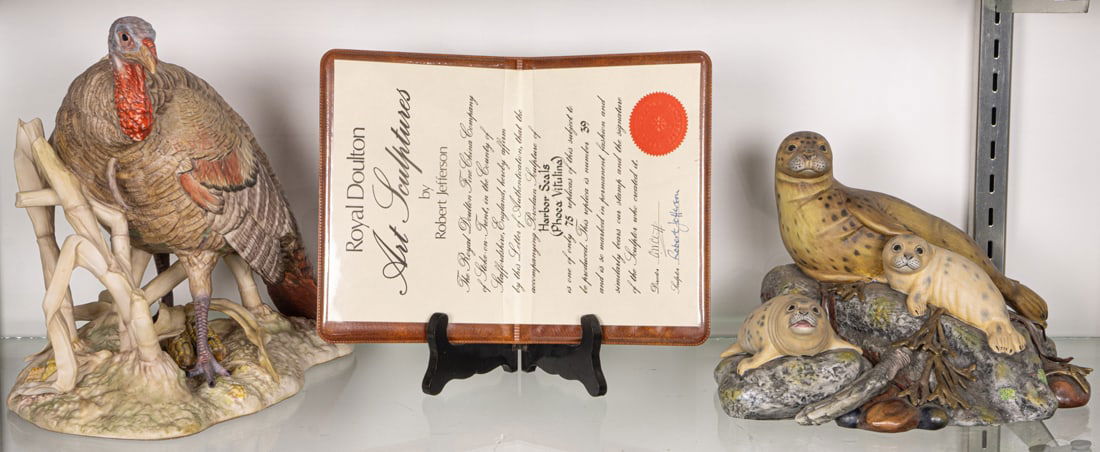 Royal Doulton
Art Sculptures
by
Robert Jefferson
The Royal Doulton Fine China Company
of Stoke-on-Trent, in the County of
Staffordshire, England, hereby affirm
by this Letter of Authentication, that the
accompanying Porcelain Sculpture of
Harbor Seals
(Phoca Vitulina)
is one of only 75 replicas of this subject to
be produced. This replica is number 39
and is so marked in permanent fashion and
similarly bears our stamp and the signature
of the Sculptor who created it.
Robert Jefferson